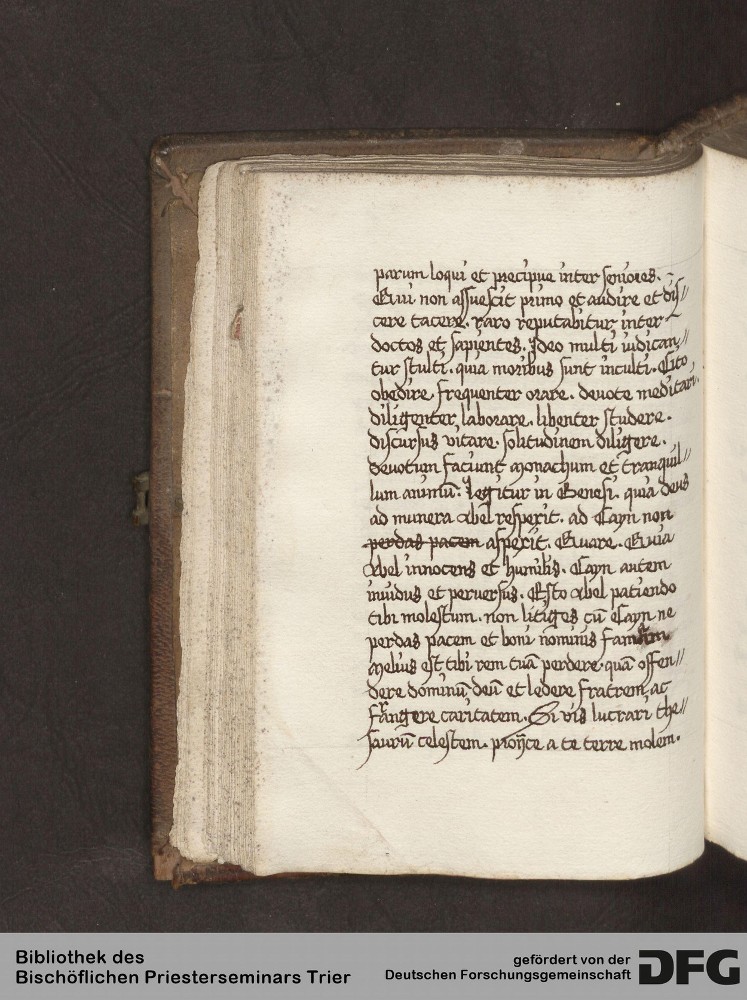 parum loqui et precipue inter seniores.
Qui non assuescit primo et audire et dis//
cere tacere. raro reputabitur inter
doctos et sapientes. Ideo multi iudican//
tur stulti. quia moribus sunt inculti. Cito
obedire. frequenter orare. deuote meditari.
diligenter laborare. libenter studere.
discursus vitare. solitudinem diligere.
deuotum faciunt monachum et tranquil//
lum animū. Legitur in Genesi. quia deus
ad munera Abel respexit. ad Cayn non
perdas pacem aspexit. Quare. Quia
Abel innocens et humilis. Cayn autem
inuidus et peruersus. Esto Abel patiendo
tibi molestum. non litiges cū Cayn ne
perdas pacem et boni nominis famam
Melius est tibi rem tuā perdere. quā offen//
dere dominū deū et ledere fratrem, ac
frangere caritatem. Si vis lucrari the//
saurū celestem. a te terre molem.
Bibliothek des
Bischöflichen Priesterseminars Trier
gefördert von der
Deutschen Forschungsgemeinschaft
DFG